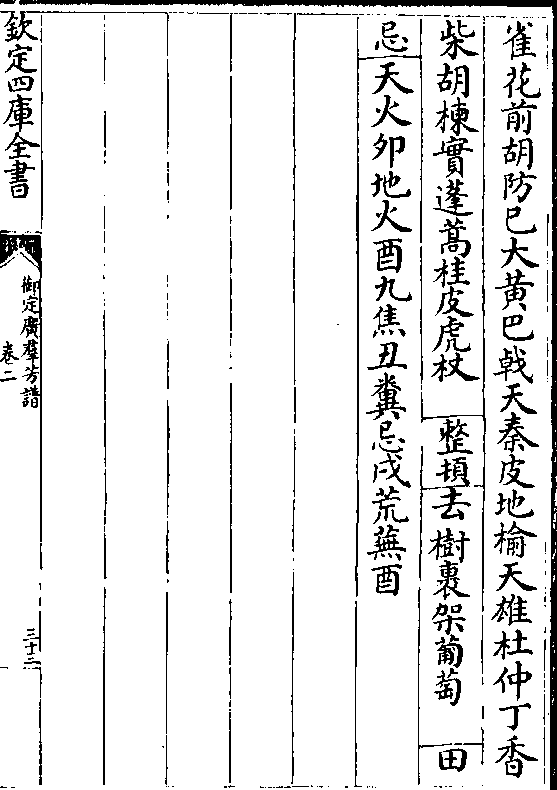 雀花前胡防巳大黄巴戟天秦皮地榆天雄杜仲丁香
柴胡楝實蓬蒿桂皮虎杖 整頓 去樹裹架葡萄 田
忌 天火夘地火酉九焦丑糞忌戌荒蕪酉
欽定四庫全書
御定廣羣芳譜
卷二
三十二